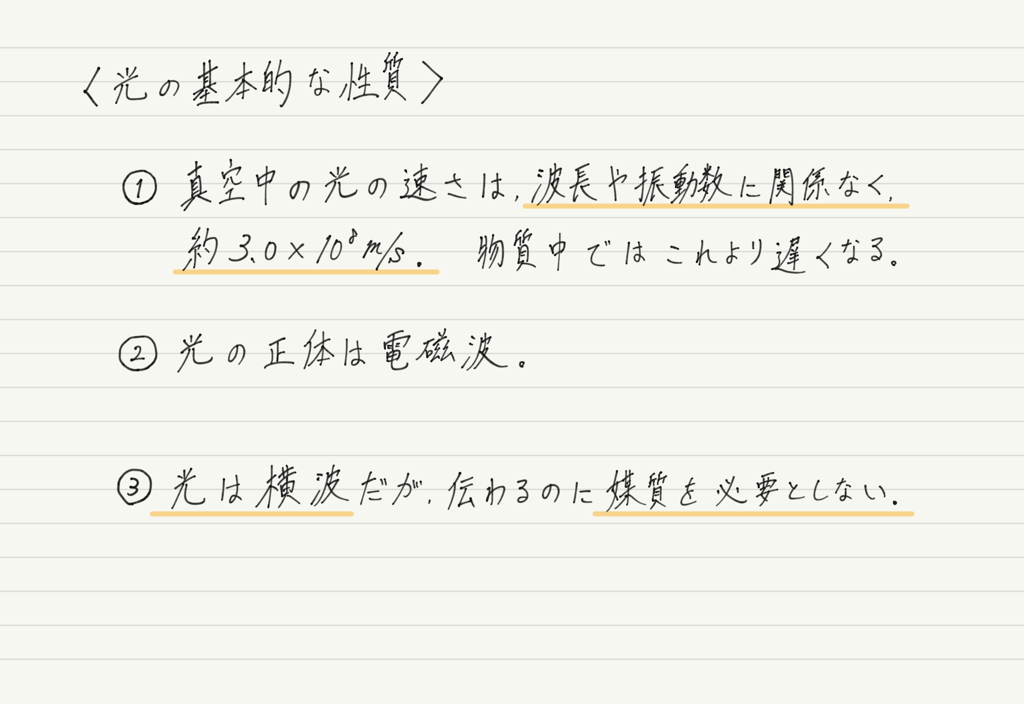 〈光の基本的な性質〉
① 真空中の光の速さは、波長や振動数に関係なく、
約3.0×10⁸m/s。 物質中ではこれより遅くなる。
② 光の正体は電磁波。
③ 光は横波だが、伝わるのに媒質を必要としない。